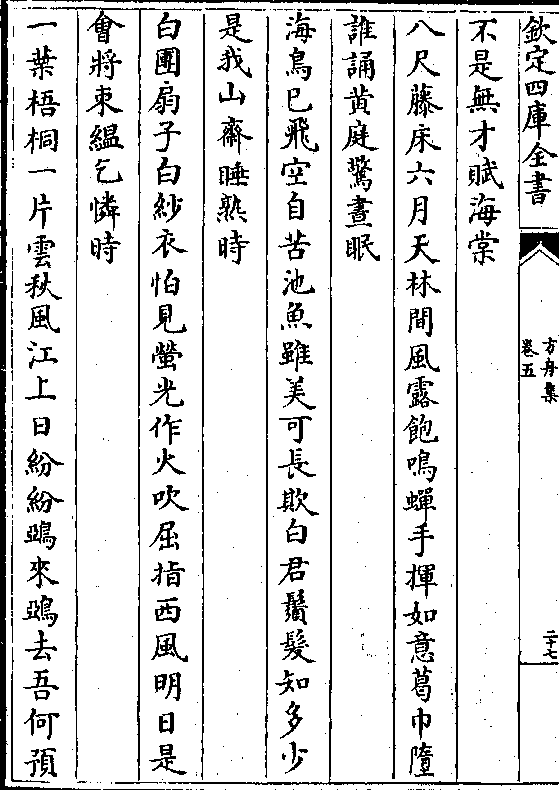 欽定四庫全書
方舟集
卷五
二十七
不是無才賦海棠
八尺藤床六月天林間風露飽鳴蟬手揮如意葛巾墮
誰誦黄庭驚晝眠
海鳥已飛空自苦池魚雖美可長欺白君鬚髮知多少
是我山齋睡熟時
白團扇子白紗衣怕見螢光作火吹屈指西風明日是
㑹將束緼乞憐時
一葉梧桐一片雲秋風江上日紛紛鴟來鴟去吾何預